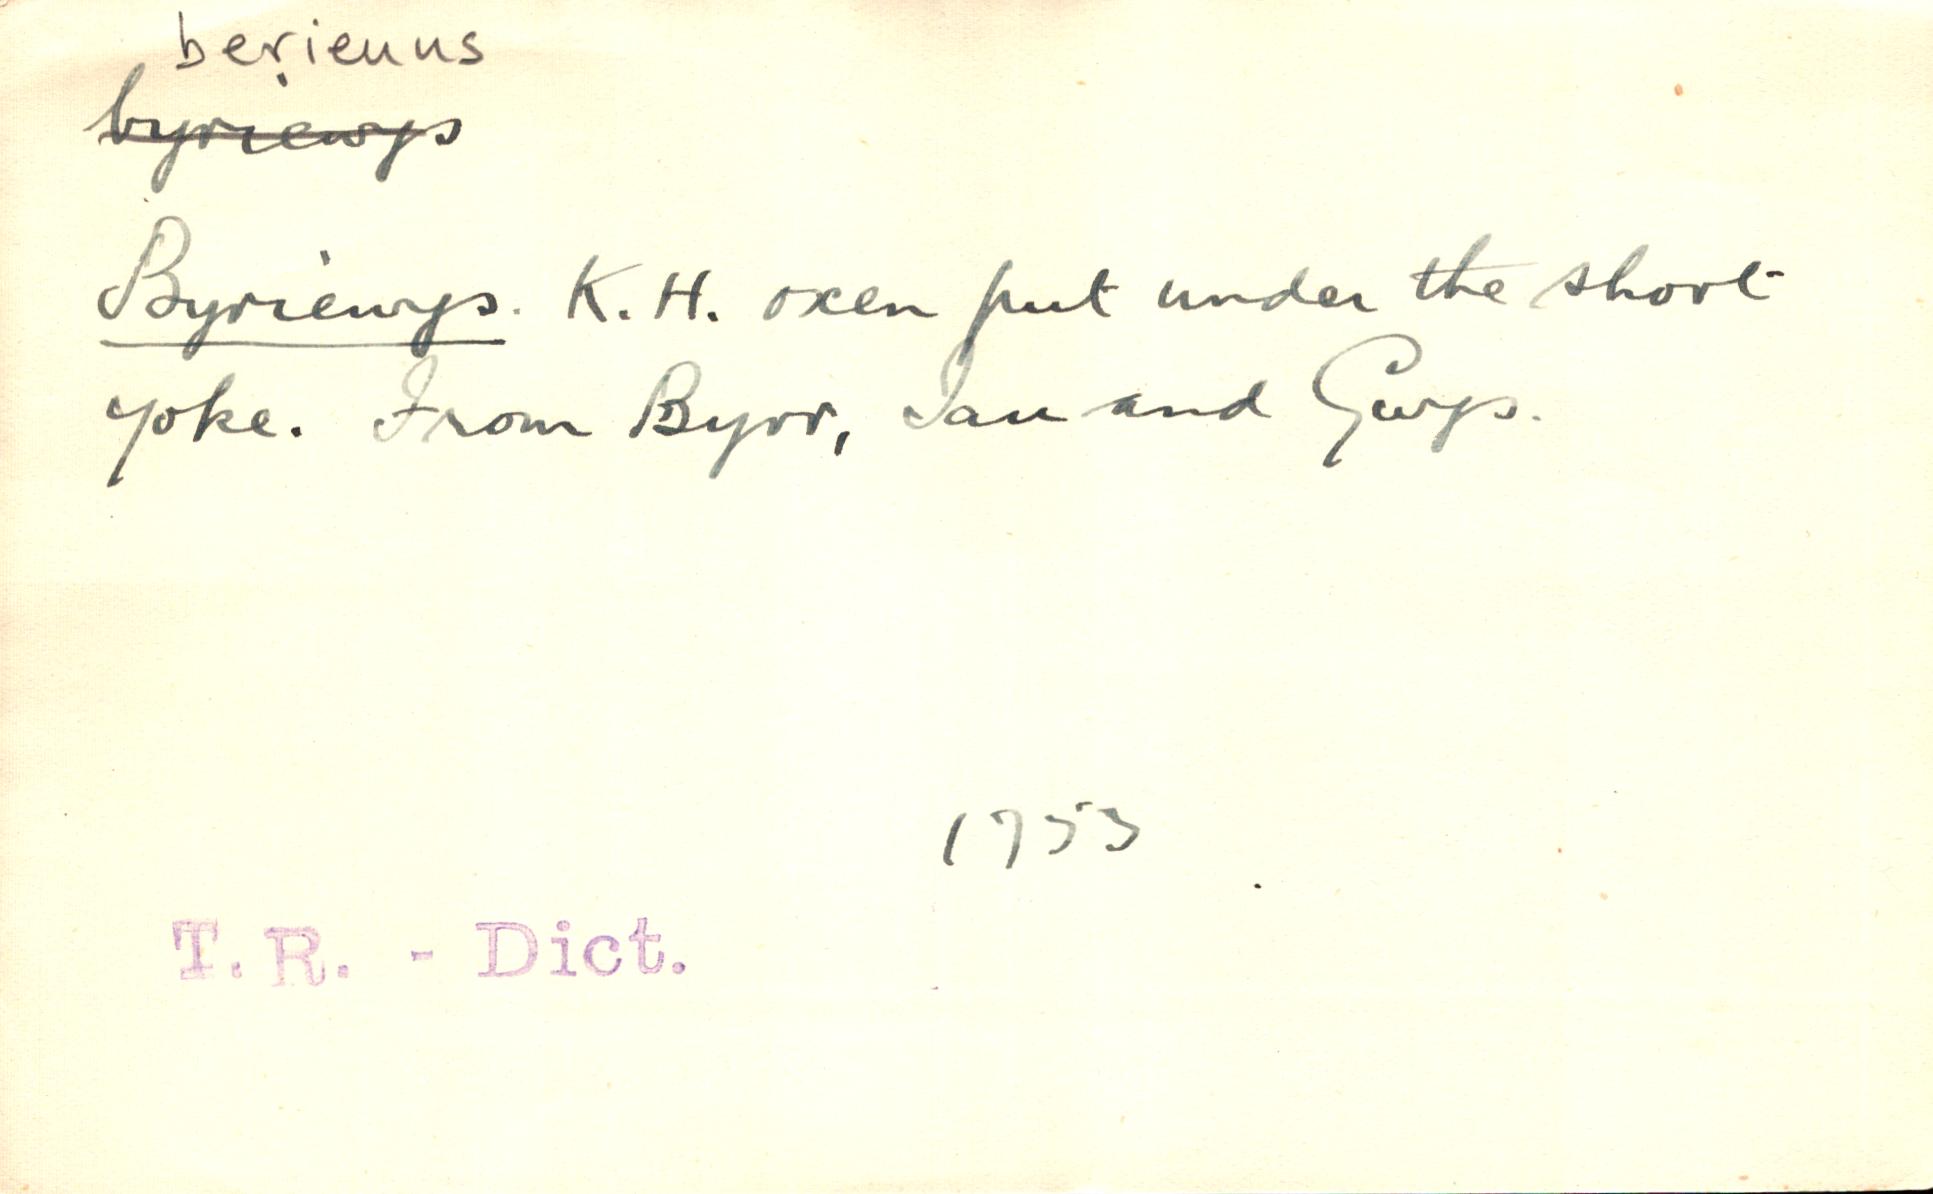 berieuus
byriewys
Byriewys. K.H. oxen put under the short
yoke. From Byrr, Iau and Gwys.
1753
T.R. - Dict.